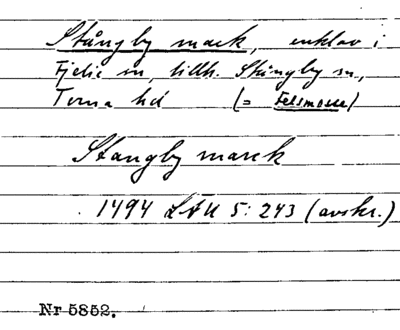 Stångby mark, enklav i
Fjelie sn, tillh. Stångby sn,
Torna hd (= Felsmosse)
Stangby marck
1494 LÄU 5: 243 (avskr.)
Nr 5852.